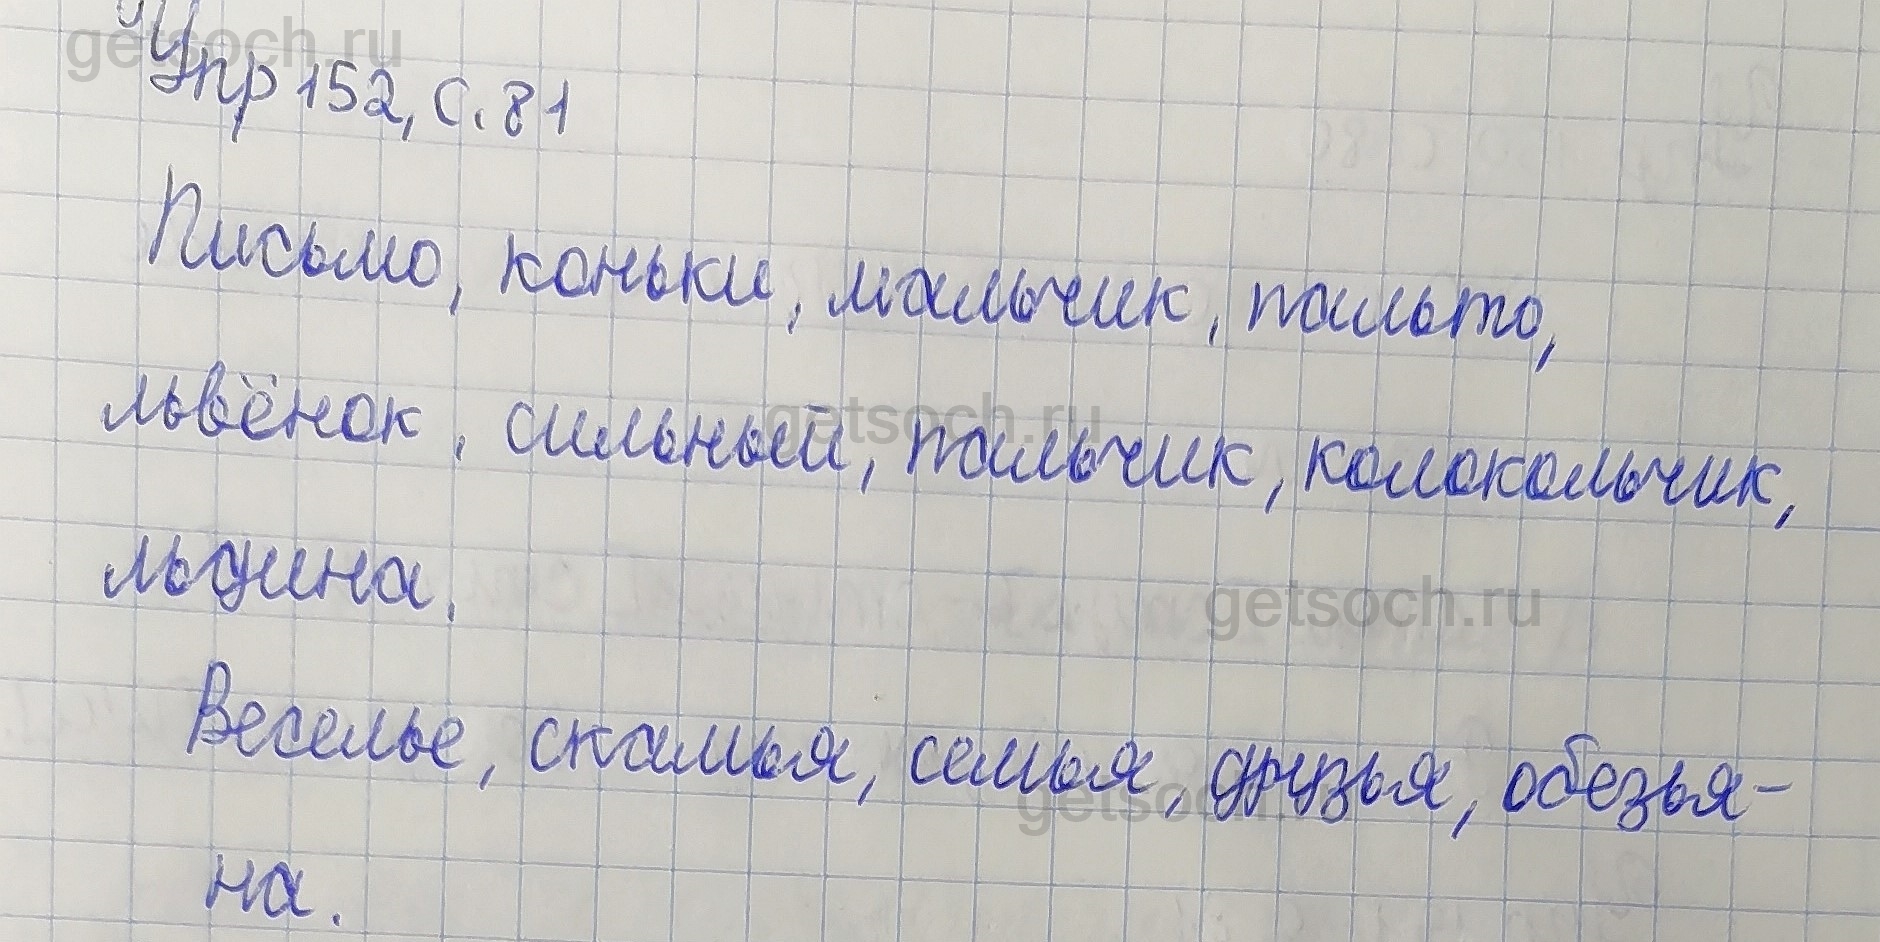 getsoch.ru
Упр 152, с. 81
Письмо, коньки, мальчик, пальто,
львёнок, сильный, пальчик, колокольчик,
getsoch.ru
льдина.
getsoch.ru
Веселье, скамья, семья, друзья, обезья-
getsoch.ru
на.